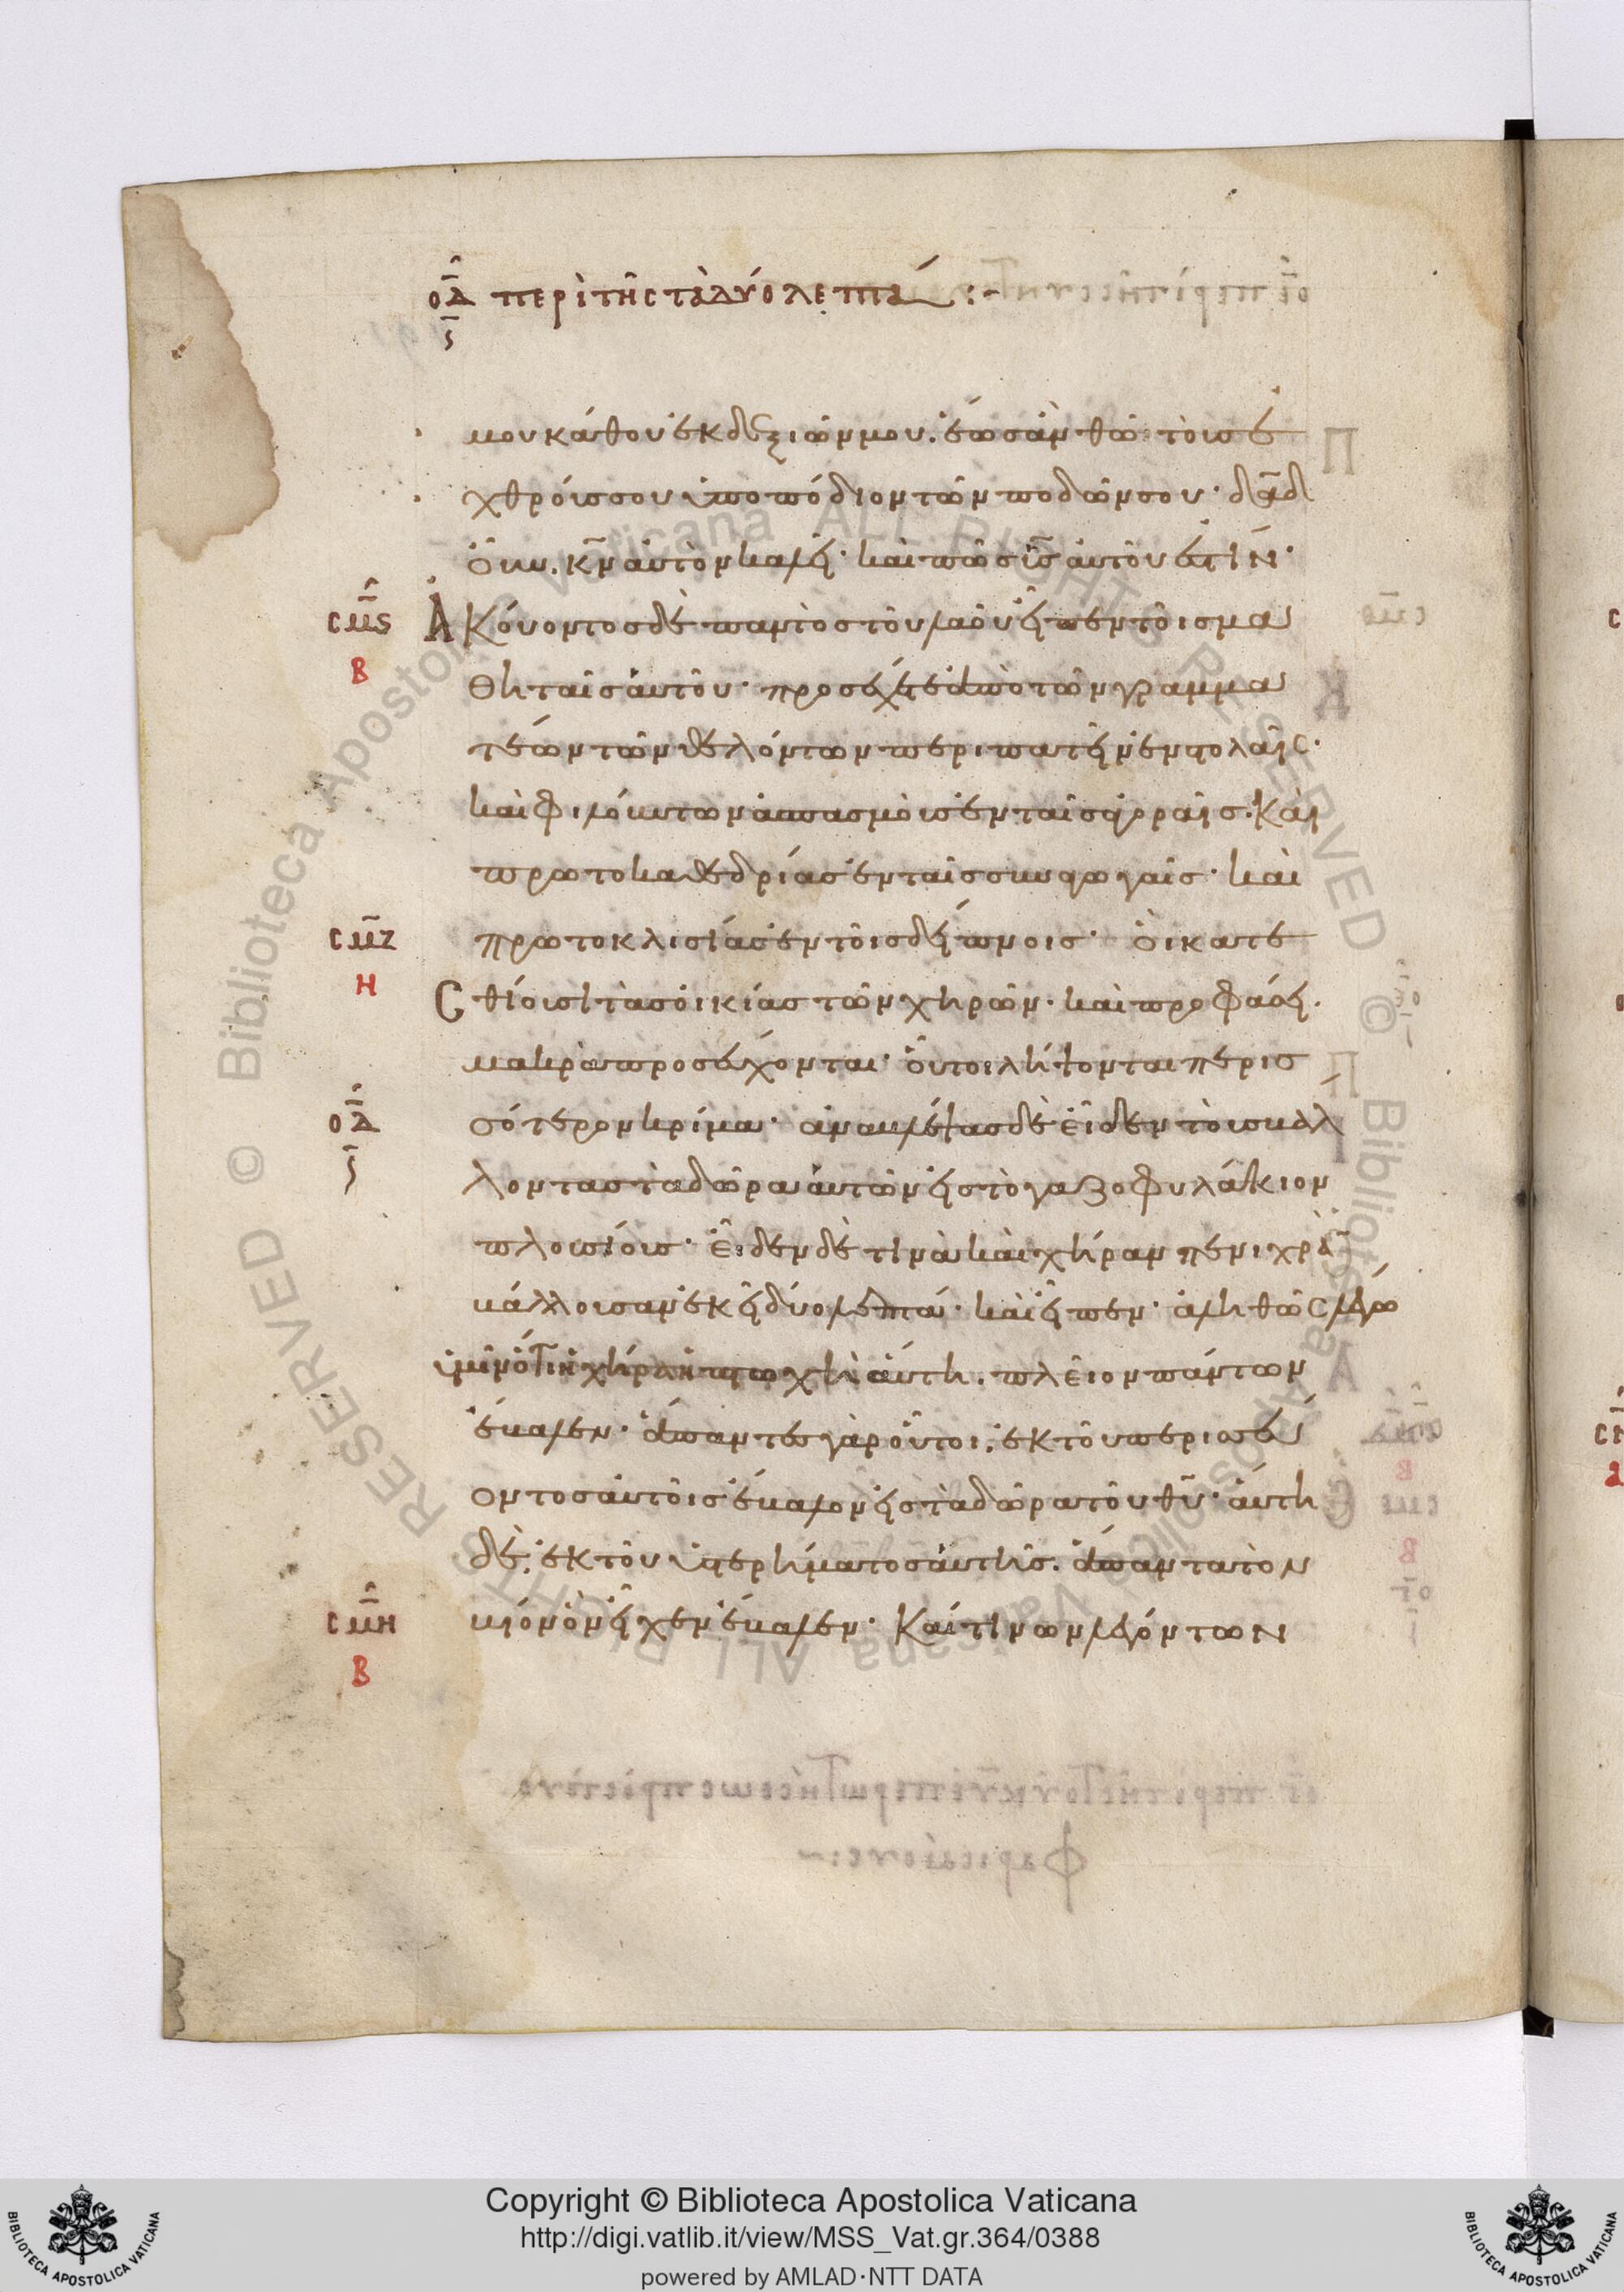 ο̅δ̅ περὶ τῆς τὰ δύο λεπτά :-
ς̅
μου κάθου ἐκ δεξιῶν μου. ἕως ἂν θῶ τοὺς ἐ
χθρούς σου ὑποπόδιον τῶν ποδῶν σου· δα̅δ
οὖν. κ̅ν̅ αὐτὸν καλεῖ· καὶ πῶς υ̅ς̅ αὐτοῦ ἐστίν·
σ̅μ̅ς̅
Β
Ἀκούοντος δὲ παντὸς τοῦ λαοῦ εἶπεν τοῖς μα
θηταῖς αὐτοῦ· προσέχετε ἀπὸ τῶν γραμμα
τέων τῶν θελόντων περιπατεῖν ἐν στολαῖς·
καὶ φιλούντων ἀσπασμοὺς ἐν ταῖς ἀγοραῖς. καὶ
πρωτοκαθεδρίας ἐν ταῖς συναγωγαῖς· καὶ
σ̅μ̅ζ̅
Η
πρωτοκλισίας ἐν τοῖς δείπνοις· οἱ κατε
σθίουσι τὰς οἰκίας τῶν χηρῶν· καὶ προφάσει.
μακρὰ προσέχονται· οὗτοι λήψονται περισ
ο̅δ̅
ς̅
σότερον κρίμα· ἀναβλέψας δὲ εἶδεν τοὺς βάλ
λοντας τὰ δῶρα αὐτῶν εἰς τὸ γαζοφυλάκιον
πλουσίους· εἶδεν δὲ τινὰ καὶ χήραν πενιχρὰ̅
βάλλουσαν ἐκεῖ δύο λεπτά· καὶ εἶπεν· ἀληθῶς λέγω
ὑμῖν ὅτι ἡ χήρα ἡ πτωχὴ αὕτη. πλεῖον πάντων
ἔβαλεν· ἅπαντες γὰρ οὗτοι. ἐκ τοῦ περισσεύ
οντος αὐτοῖς ἔβαλον εἰς τὰ δῶρα τοῦ θ̅υ̅· αὕτη
δέ. ἐκ τοῦ ὑστερήματος αὐτῆς. ἅπαντα τὸν
σ̅μ̅η̅
Β
βίον ὃν εἶχεν ἔβαλεν· Καί τινων λεγόντων
Copyright © Biblioteca Apostolica Vaticana
http://digi.vatlib.it/view/MSS_Vat.gr.364/0388
powered by AMLAD·NTT DATA